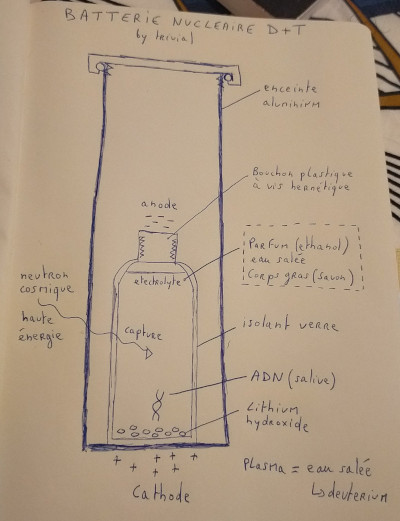 BATTERIE NUCLEAIRE D+T
by trivial
enceinte
aluminium
Bouchon plastique
à vis hermétique
anode
- - -
- - -
Parfum (éthanol)
eau salée
Corps gras (savon)
electrolyte
neutron
cosmique
haute
énergie
capture
isolant verre
ADN (salive)
Lithium
hydroxide
+ + + + + + +
Cathode
Plasma = eau salée
↳ deuterium